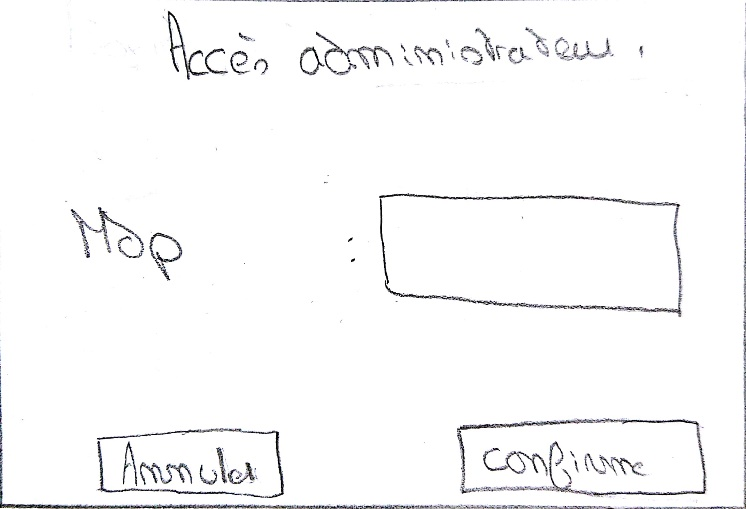 Accès administrateur.
Mdp :
Annuler
confirme